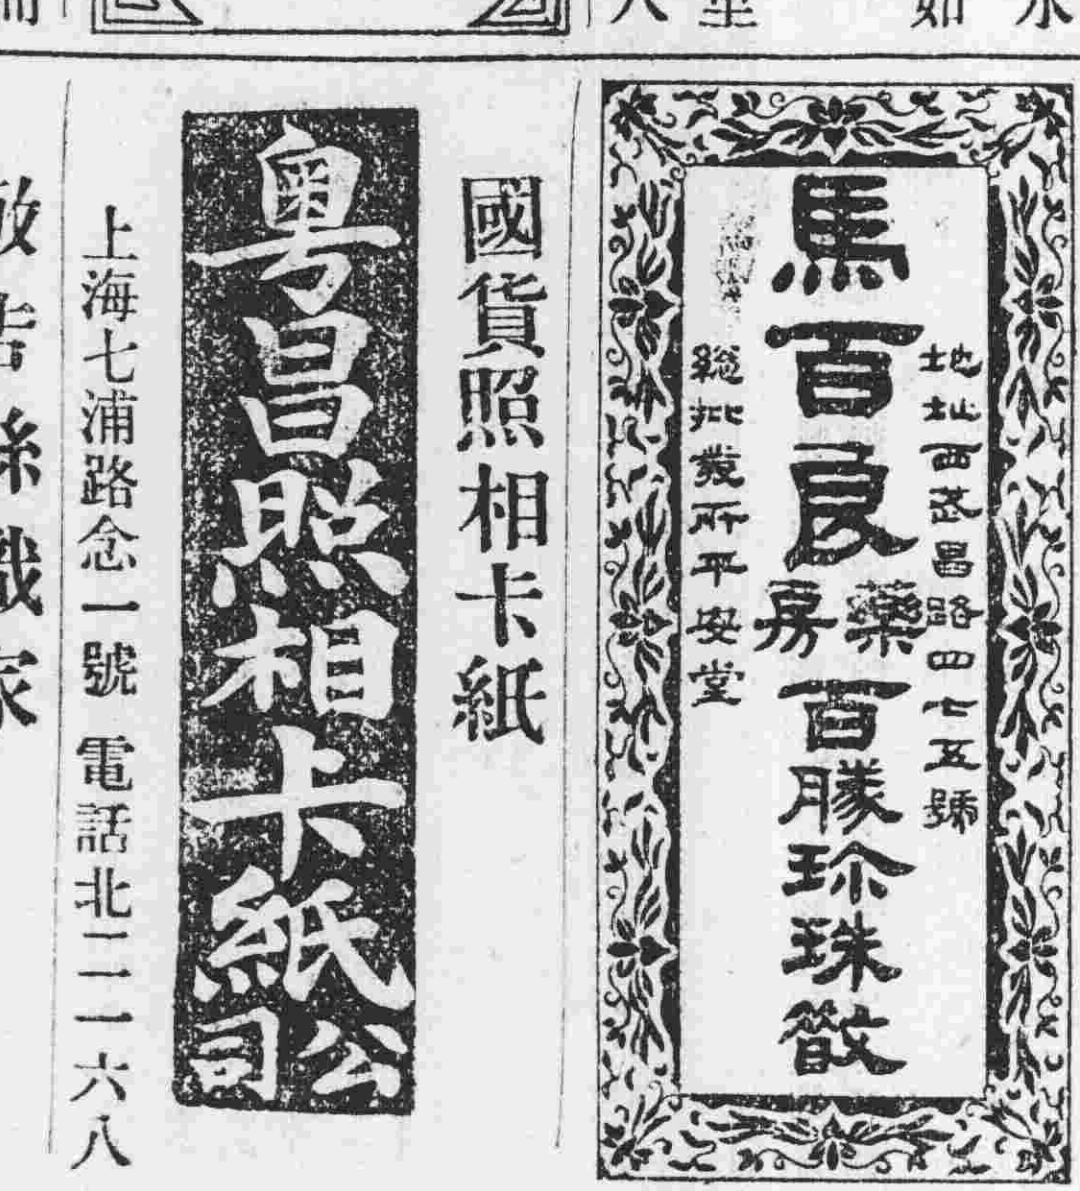 地址西武昌路四七五號
馬百良藥房百勝珍珠散
總批發所平安堂
國貨照相卡紙
粤昌照相卡紙公司
上海七浦路念一號 電話北二一一六八